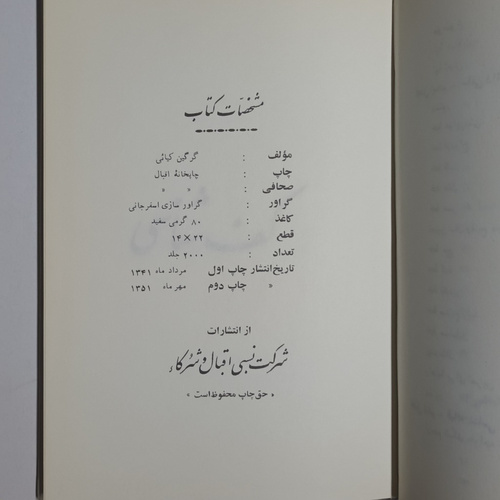 مشخصات کتاب
مؤلف : گرگین کیائی
چاپ : چاپخانهٔ اقبال
صحافی : » »
گراور : گراور سازی اسفرجانی
کاغذ : ۸۰ گرمی سفید
قطع : ۲۲ × ۱۴
تعداد : ۲۰۰۰ جلد
تاریخ انتشار چاپ اول مرداد ماه ۱۳۴۱
» چاپ دوم مهر ماه ۱۳۵۱
از انتشارات
شرکت نسبی اقبال و شرکاء
« حق چاپ محفوظ است »